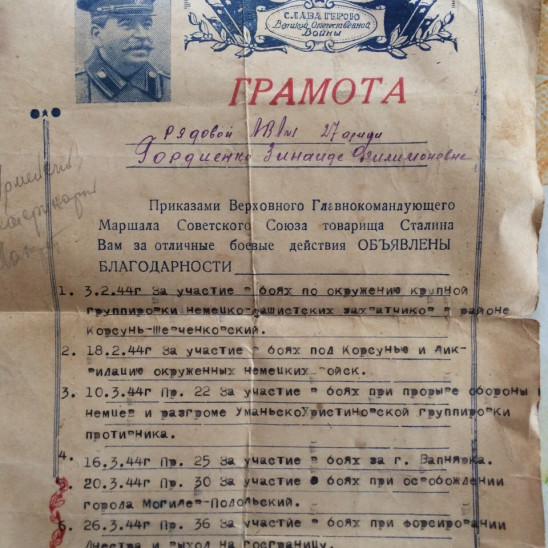 СЛАВА ГЕРОЮ
Великой Отечественной
Войны
ГРАМОТА
рядовой 27 армии
Гордиенко Зинаиде Филимоновне
Приказами Верховного Главнокомандующего
Маршала Советского Союза товарища Сталина
Вам за отличные боевые действия ОБЪЯВЛЕНЫ
БЛАГОДАРНОСТИ
1. 3.2.44г За участие в боях по окружению крупной
группировки немецко-фашистских захватчиков в районе
Корсунь-Шевченковский.
2. 18.2.44г За участие в боях под Корсунью и лик-
видацию окруженных немецких войск.
3. 10.3.44г Пр. 22 За участие в боях при прорыве обороны
немцев и разгроме УманьскоХристиновской группировки
противника.
4. 16.3.44г Пр. 25 За участие в боях за г. Вапнярка.
5. 20.3.44г Пр. 30 За участие в боях при освобождении
города Могилев-Подольский.
6. 26.3.44г Пр. 36 За участие в боях при форсировании
Днестра и выход на госграницу.